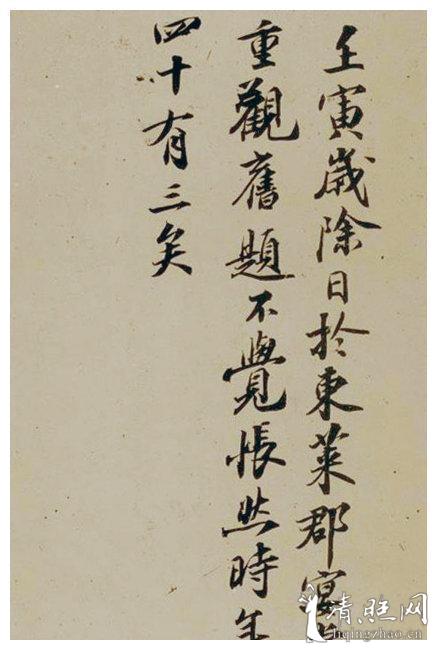 壬寅歲除日於東萊郡宴
重觀舊題不覺悵然時年
四十有三矣
清照网
liqingzhao.cn